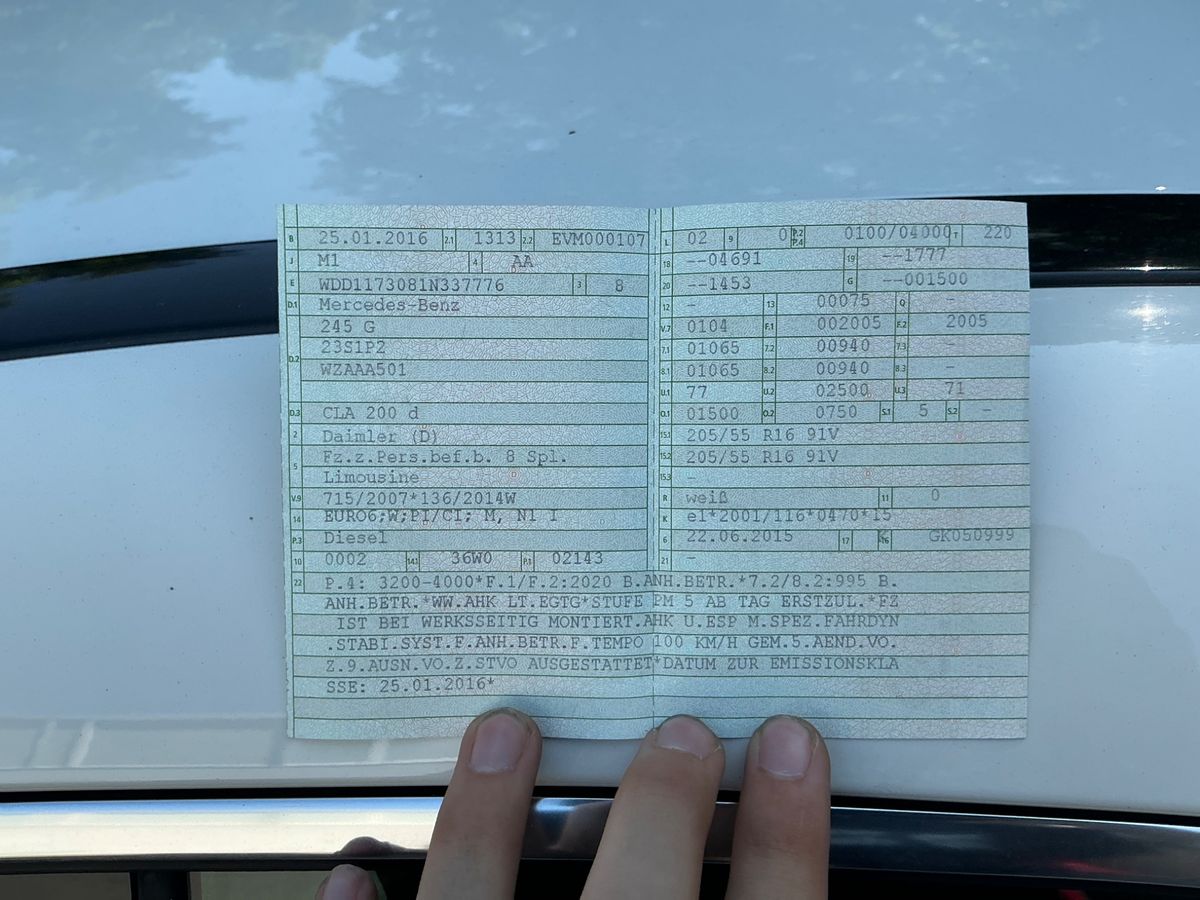 B 25.01.2016 2.1 1313 2.2 EVM000107
J M1 4 AA
E WDD1173081N337776 3 8
D.1 Mercedes-Benz
245 G
D.2 23S1P2
WZAAA501
D.3 CLA 200 d
2 Daimler (D)
5 Fz.z.Pers.bef.b. 8 Spl.
Limousine
V.9 715/2007*136/2014W
14 EURO6;W;PI/CI; M, N1 I
P.3 Diesel
10 0002 14.1 36W0 P.1 02143
L 02 9 0 P.2 P.4 0100/04000 T 220
18 --04691 19 --1777
20 --1453 G --001500
12 - 13 00075 Q -
V.7 0104 F.1 002005 F.2 2005
7.1 01065 7.2 00940 7.3 -
8.1 01065 8.2 00940 8.3 -
U.1 77 U.2 02500 U.3 71
O.1 01500 O.2 0750 S.1 5 S.2 -
15.1 205/55 R16 91V
15.2 205/55 R16 91V
15.3 -
R weiß 11 0
K e1*2001/116*0470*15
6 22.06.2015 17 K 16 GK050999
21 -
22 P.4: 3200-4000*F.1/F.2:2020 B.ANH.BETR.*7.2/8.2:995 B.
ANH.BETR.*WW.AHK LT.EGTG*STUFE PM 5 AB TAG ERSTZUL.*FZ
IST BEI WERKSSEITIG MONTIERT.AHK U.ESP M.SPEZ.FAHRDYN
.STABI.SYST.F.ANH.BETR.F.TEMPO 100 KM/H GEM.5.AEND.VO.
Z.9.AUSN.VO.Z.STVO AUSGESTATTET*DATUM ZUR EMISSIONSKLA
SSE: 25.01.2016*